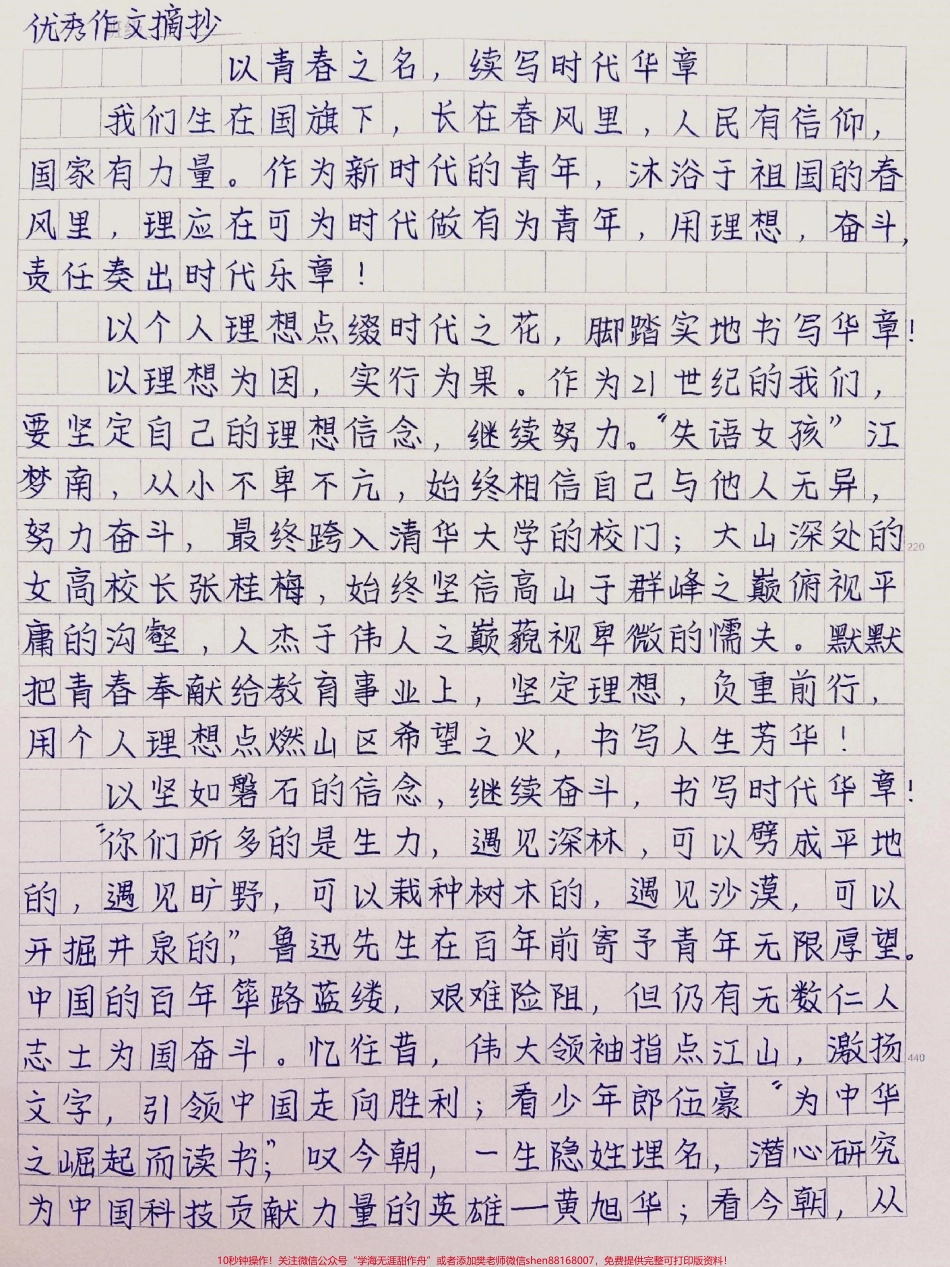 优秀作文摘抄
以青春之名，续写时代华章
我们生在国旗下，长在春风里，人民有信仰，
国家有力量。作为新时代的青年，沐浴于祖国的春
风里，理应在可为时代做有为青年，用理想，奋斗，
责任奏出时代乐章！
以个人理想点缀时代之花，脚踏实地书写华章！
以理想为因，实行为果。作为21世纪的我们，
要坚定自己的理想信念，继续努力。“失语女孩”江
梦南，从小不卑不亢，始终相信自己与他人无异，
努力奋斗，最终跨入清华大学的校门；大山深处的
220
女高校长张桂梅，始终坚信高山于群峰之巅俯视平
庸的沟壑，人杰于伟人之巅藐视卑微的懦夫。默默
把青春奉献给教育事业上，坚定理想，负重前行，
用个人理想点燃山区希望之火，书写人生芳华！
以坚如磐石的信念，继续奋斗，书写时代华章！
“你们所多的是生力，遇见深林，可以劈成平地
的，遇见旷野，可以栽种树木的，遇见沙漠，可以
开掘井泉的”，鲁迅先生在百年前寄予青年无限厚望。
中国的百年筚路蓝缕，艰难险阻，但仍有无数仁人
志士为国奋斗。忆往昔，伟大领袖指点江山，激扬
440
文字，引领中国走向胜利；看少年郎伍豪“为中华
之崛起而读书”；叹今朝，一生隐姓埋名，潜心研究
为中国科技贡献力量的英雄一黄旭华；看今朝，从
10秒钟操作！关注微信公众号“学海无涯甜作舟”或者添加樊老师微信shen88168007，免费提供完整可打印版资料！